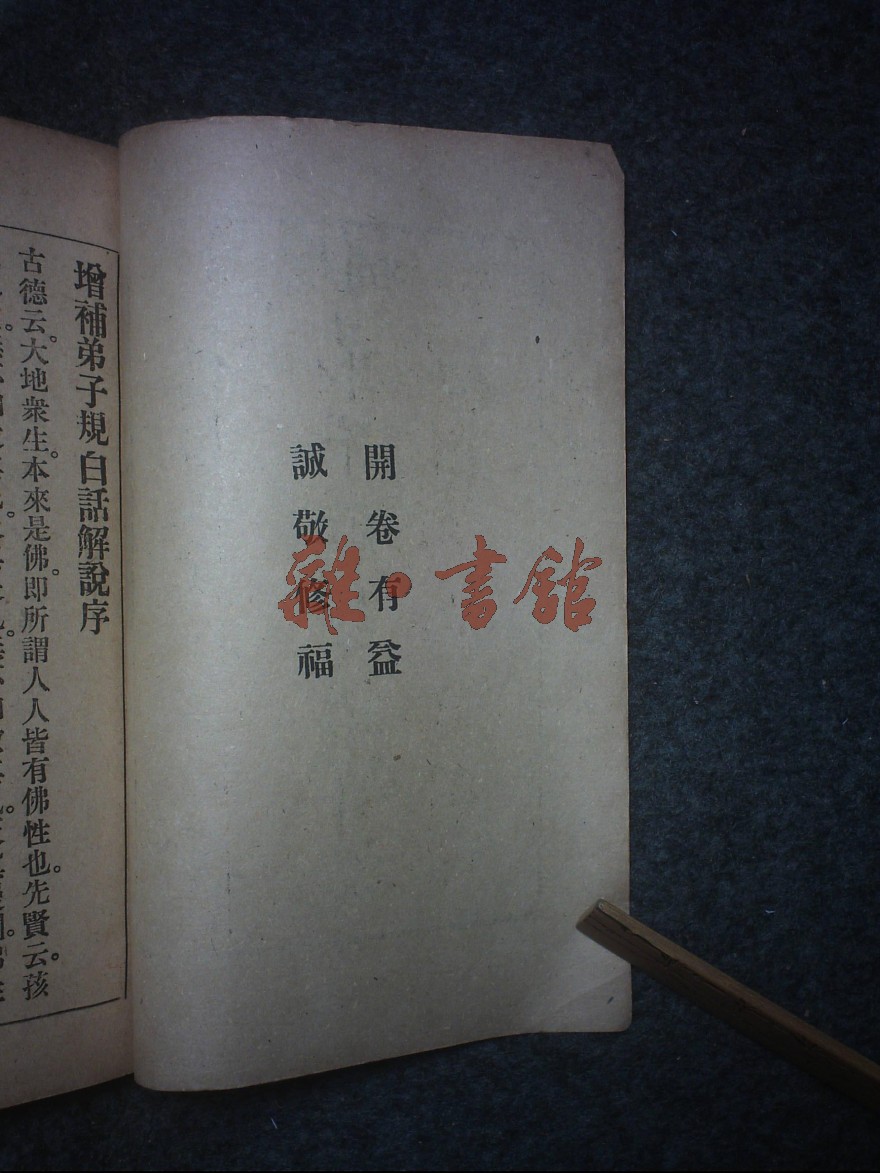 開卷有益
誠敬修福
增補弟子規白話解說序
古德云。大地衆生。本來是佛。即所謂人人皆有佛性也。先賢云。孩
雜·書館